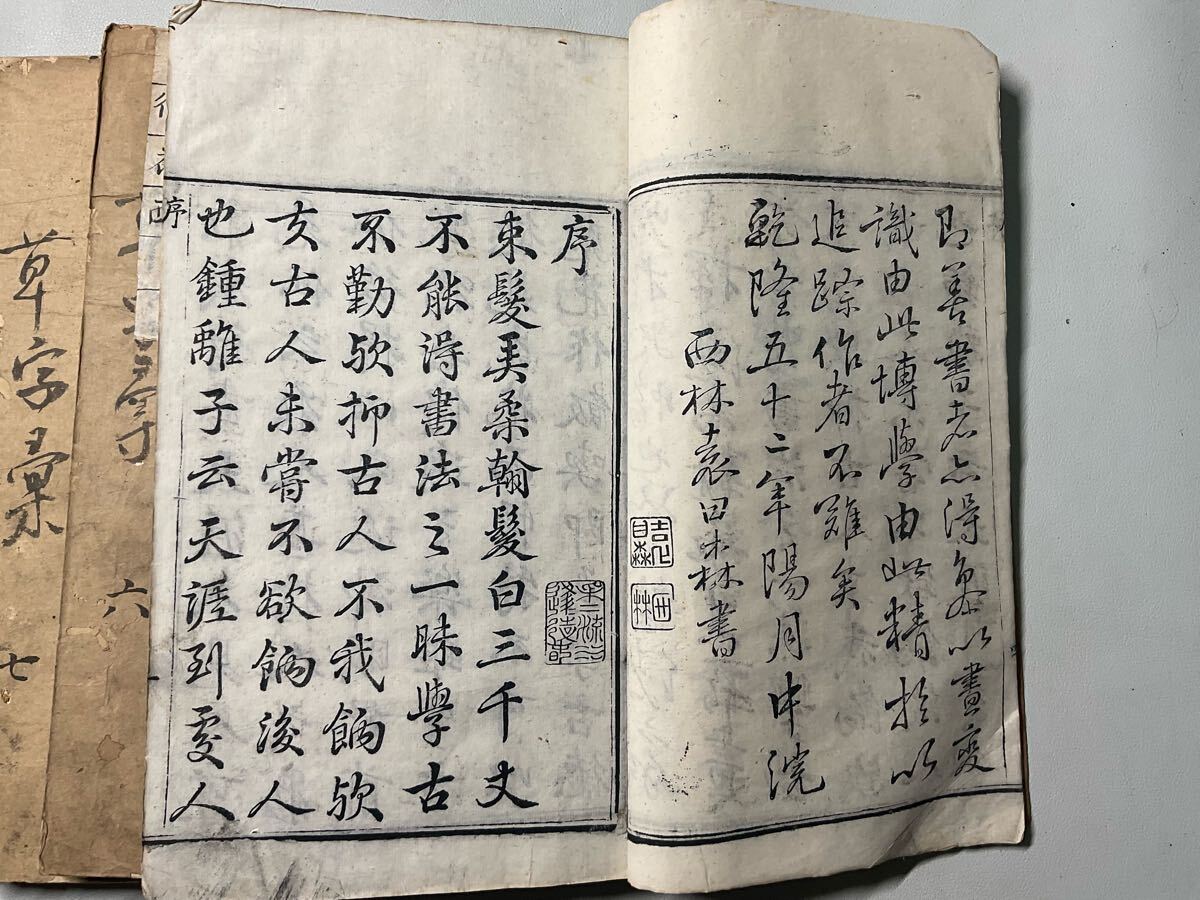 即善書者亦得參以盡變
識由此博學由此精於以
追蹤作者不難矣
乾隆五十二年陽月中浣
西林袁日森書
西林
序
束髮弄柔翰髮白三千丈
不能得書法之一昧學古
不勤歟抑古人不我餉歟
夫古人未嘗不欲餉後人
也鍾離子云天涯到處人
序 一
六
草字彙 七